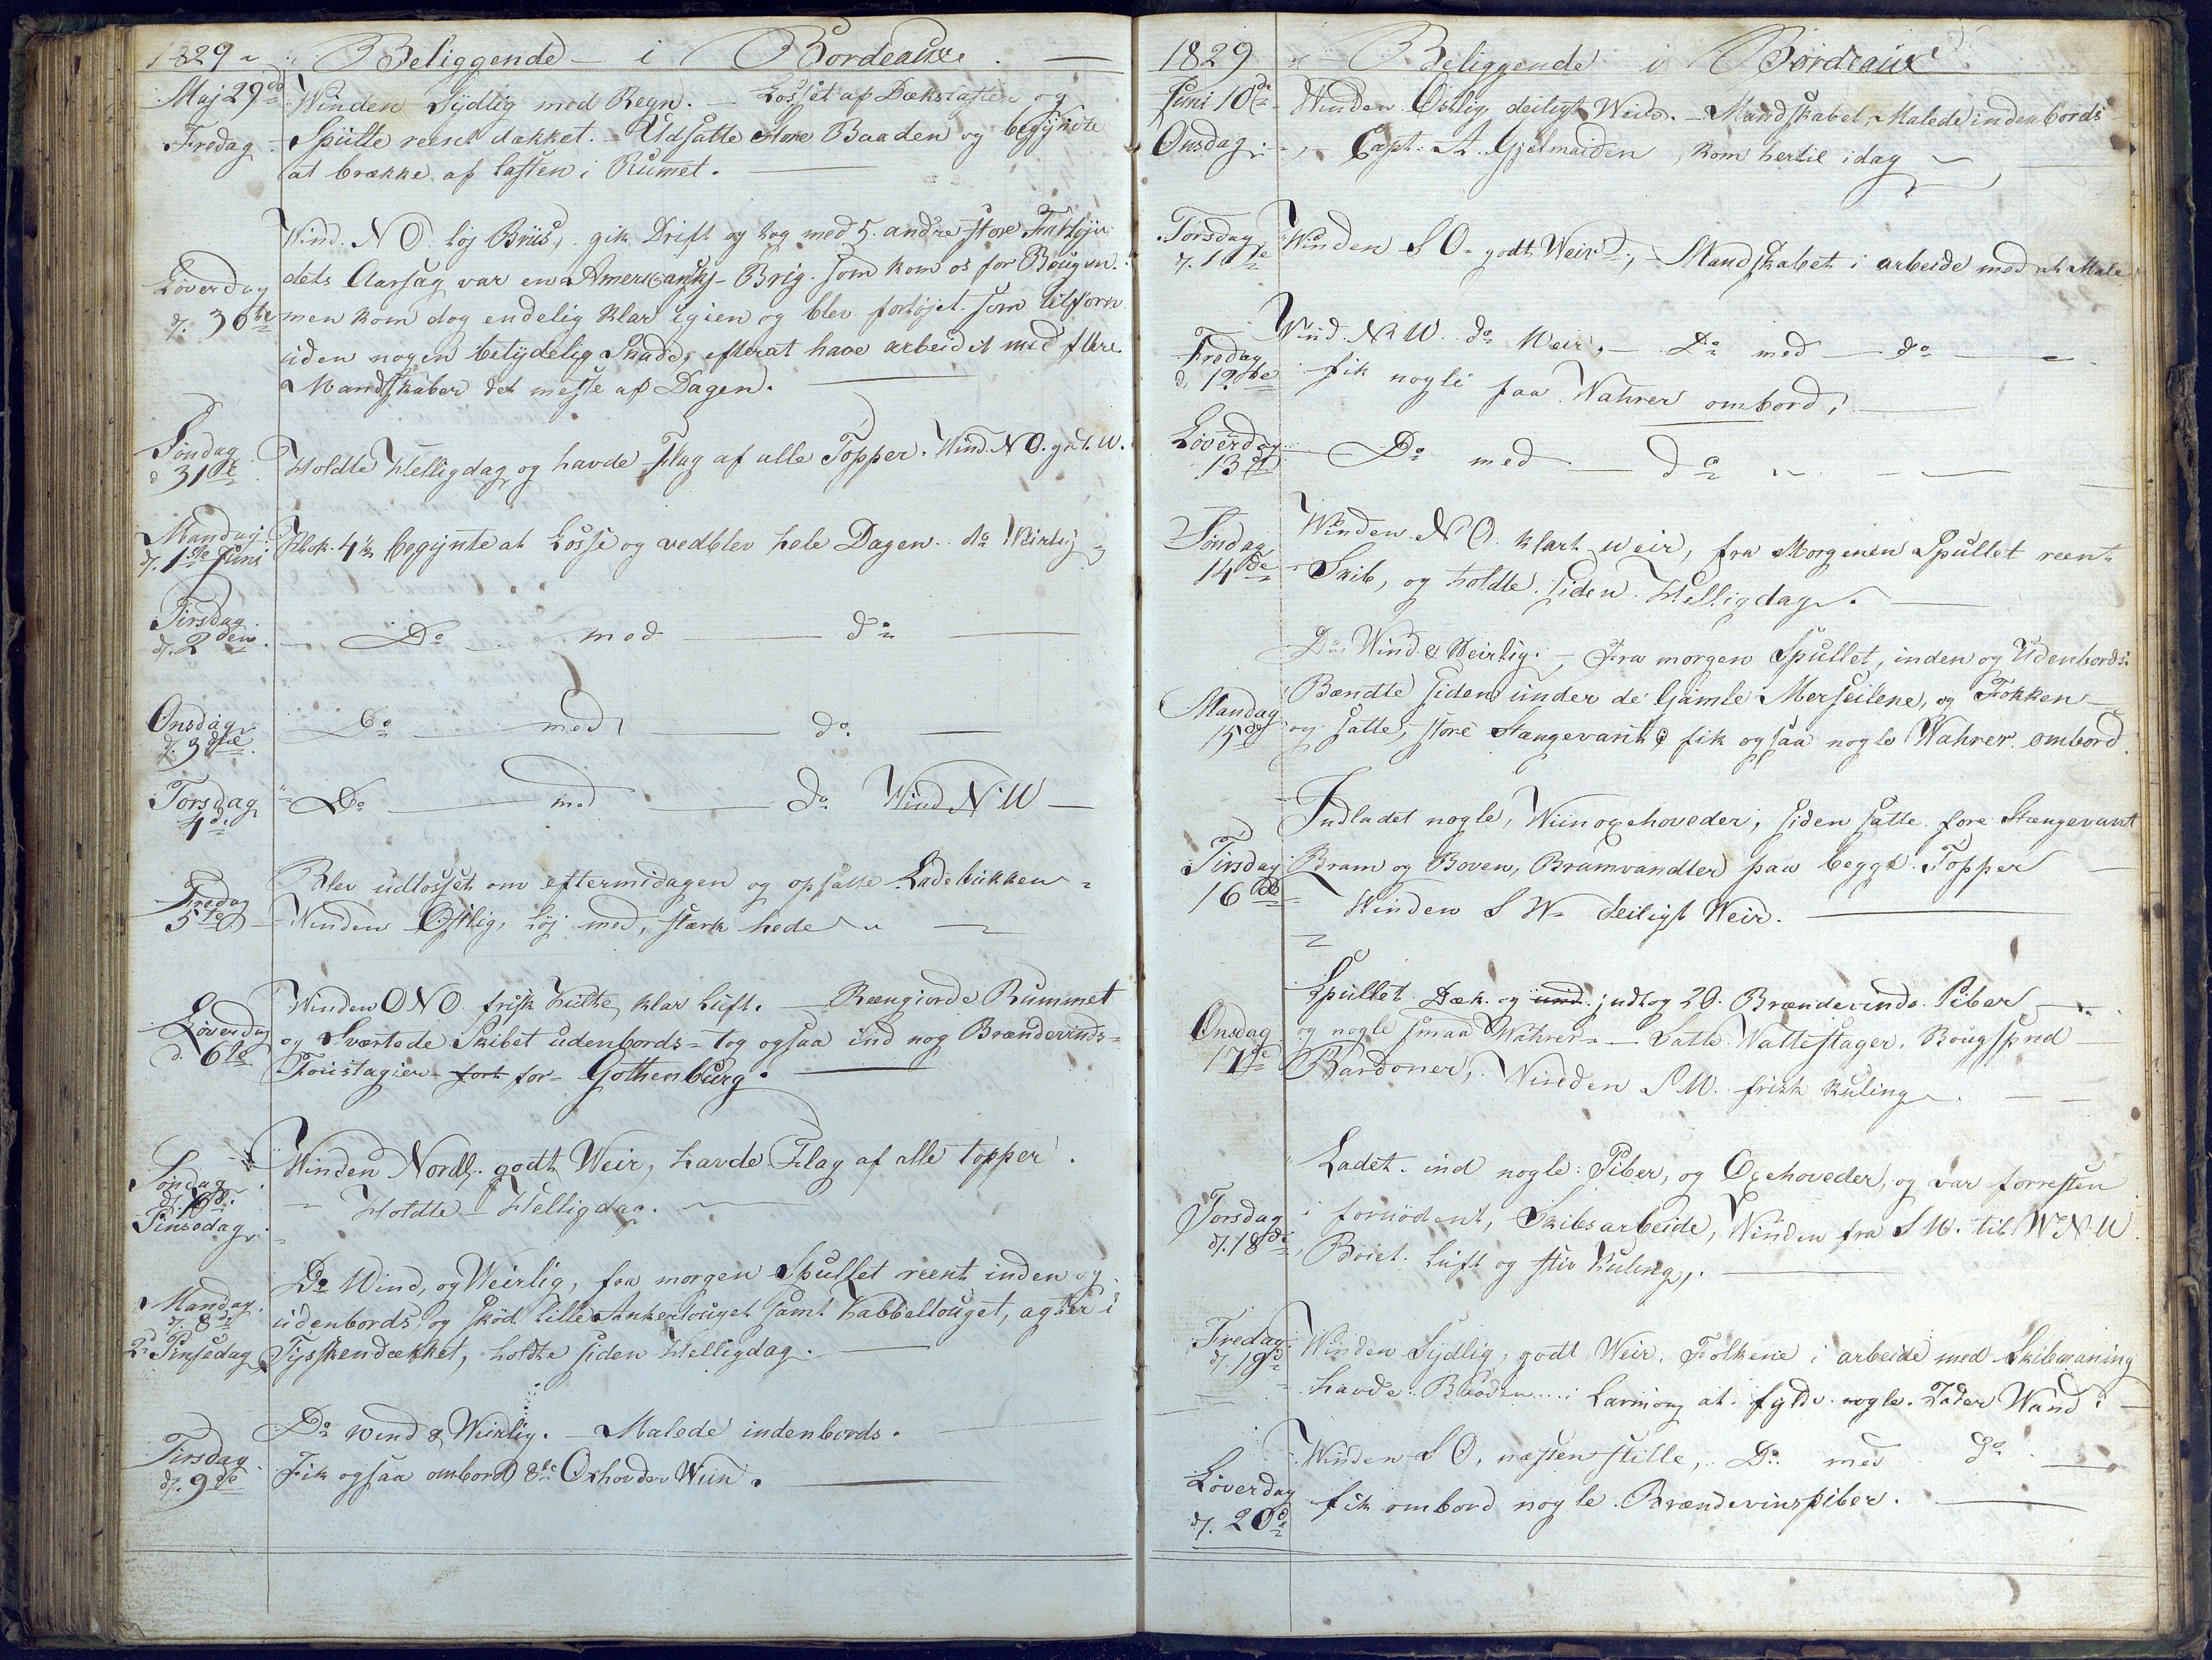 1829 ~ Beliggende — i Bordeaux. —
Maj 29de Winden Sydlig med Regn. — Losset af Dækslasten og
Fredag Spulte reent dækket. — Udsatte store Baaden og begyndte
at brække af lasten i Rummet.
Wind. N O. løj Briis, gik Drift og tog med 5. andre store
dets Aarsag var en Amerikansk - Brig. som kom os for Bougen.
Løverdag
d. 30te men kom dog endelig klar igien og blev fortøjet som tilforn
uden nogen betydelig Skade, efterat have arbeidet med flere
Mandskaber det meste af Dagen.
Søndag
d 31te Holdte Helligdag, og havde Flag af alle Topper. Wind N O. godt W.
Mandag
d. 1ste Juni Klok. 4½ begynte at Losse og vedblev hele Dagen. do Weirlig
Tirsdag
d. 2den — Do — med — do —
Onsdag
d. 3die Do — med — do. —
Torsdag
4de Do — med — do Wind N W —
Blev udlosset om eftermidagen og opsatte Ladebukken
Fredag
5te Winden Østlig, løj med, stærk hede
Winden O N O. frisk kulte, klar Luft. — Reengiorde Rummet
Løverdag
d. 6te og Sværtede Skibet udenbords = tog ogsaa ind nog Brændevinds=
Foustagier fort for Gothenburg.
Winden Nordl. godt Weir, havde Flag af alle topper.
Søndag
Pinsedag Holdte Helligdag.
Do Wind, og Weirlig, fra morgen Spullet reent inden og
Mandag
d. 8de udenbords, og skød lille Ankertouget samt Kabbeltouget, agter i
2d Pinsedag Tysskendækket, holdte siden Helligdag.
Do wind & Weirlig. — Malede indenbords.
Tirsdag
d. 9de Fik ogsaa ombord 8te Oxhovder Wiin.
1829 Beliggende i Bordeaux
Juni 10de Winden Østlig deiligt Weir. — Mandskabet, Malede indenbords
Onsdag Capt. A. Gjelmuiden, kom hertil idag
Torsdag
d. 11te Winden S O. godt Weir, Mandskabet i arbeide med at Male
Wind. N W. do Weir, — Do med — do —
Fredag
d. 12te fik nogle faa Wahrer ombord,
Løverdag
13de Do med — do
Winden N O klart weir, fra Morgenen Spullet reent
Søndag
14de Skib, og holdte siden Helligdag.
Do Wind & Weirlig. — Fra morgen Spullet, inden og Udenbords.
Bændte siden under de Gamle Merseilene, og Fokken
Mandag
15de og satte, store Stængevant, fik ogsaa nogle Wahrer ombord.
Indladet nogle, Wiinoxehoveder, siden satte fore Stængevant
Tirsdag
16de Bram og Boven, Bramvandter paa begge Topper
Winden S W. deiligt Weir.
Spullet Dæk. og und. indtog 20. Brændevinds Piber —
Onsdag
17de og nogle smaa Wahrer. — Satte Wattestager, Bougspred
Bardoner, Winden S W. frisk Kuling.
Ladet ind nogle Piber, og Oxehoveder, og var forresten
Torsdag
d. 18de i fornødent, Skibsarbeide, Winden fra S W. til W N W
Bøiet Luft og stiv Kuling.
Fredag
d. 19de Winden Sydlig, godt Weir. Folkene i arbeide med Skibmaning
havde Baaden i at fylde nogle Fader Wand i
Winden S O, næsten stille, Do med do
Løverdag
d. 20de fik ombord nogle Brændevinspiber.